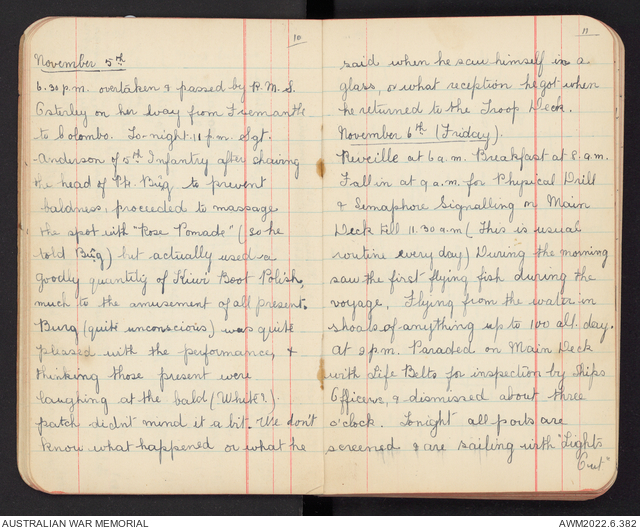 10
November 5th
6.30 p.m. overtaken & passed by R.M.S.
Osterley on her way from Fremantle
to Colombo. To-night 11 p.m. Sgt.
Anderson of 5th Infantry after shaving
the head of Pte. Bug to prevent
baldness, proceeded to massage
the spot with "Rose Pomade" (so he
told Bug) but actually used a
goodly quantity of Kiwi Boot Polish,
much to the amusement of all present.
Burg (quite unconscious) was quite
pleased with the performance, &
thinking those present were
laughing at the bald (White?)
patch didn't mind it a bit. We don't
know what happened or what he
11
said when he saw himself in a
glass, or what reception he got when
he returned to the Troop Deck.
November 6th (Friday).
Reveille at 6 a.m. Breakfast at 8 a.m.
Fall in at 9 a.m. for Physical Drill
& Semaphore Signalling on Main
Deck till 11.30 a.m (This is usual
routine every day) During the morning
saw the first flying fish during the
voyage. Flying from the water in
shoals of anything up to 100 all day.
At 2 p.m. Paraded on Main Deck
with Life Belts for inspection by Ships
Officers, & dismissed about three
o'clock. Tonight all ports are
screened & are sailing with "Lights
Out"
AUSTRALIAN WAR MEMORIAL
AWM2022.6.382